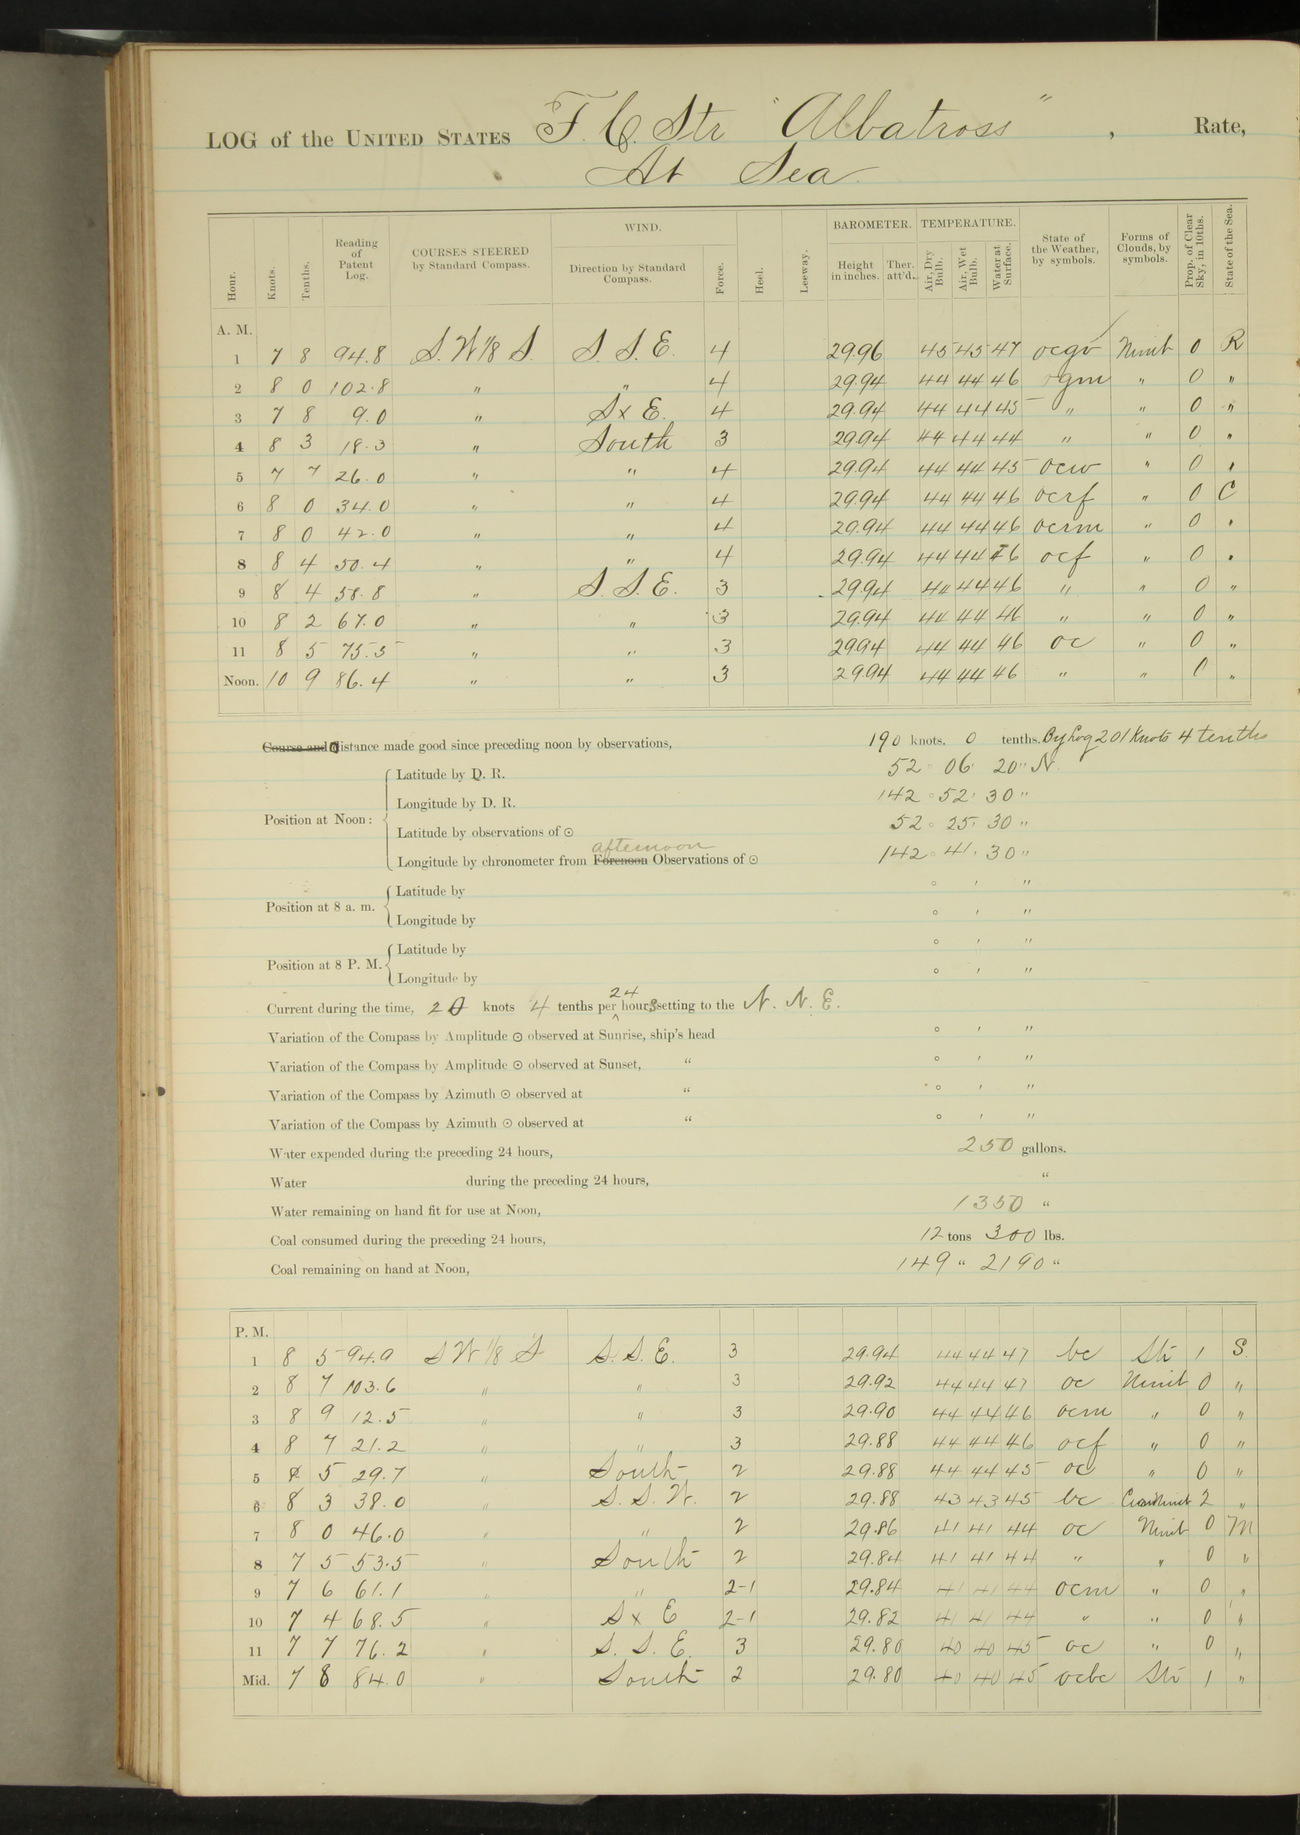 LOG of the UNITED STATES F. C. Str "Albatross", Rate,
At Sea
Hour. Knots. Tenths. Reading of Patent Log. COURSES STEERED by Standard Compass. WIND. Direction by Standard Compass. Force. Heel. Leeway. BAROMETER. Height in inches. Ther. att'd. TEMPERATURE. Air, Dry Bulb. Air, Wet Bulb. Water at Surface. State of the Weather, by symbols. Forms of Clouds, by symbols. Prop. of Clear Sky, in 10ths. State of the Sea.
A. M.
1 7 8 94.8 S.W 1/8 S. S. S. E. 4 29.96 45 45 47 ocgv Nimb 0 R
2 8 0 102.8 " " 4 29.94 44 44 46 ogm " 0 "
3 7 8 9.0 " S x E. 4 29.94 44 44 45 " " 0 "
4 8 3 18.3 " South 3 29.94 44 44 44 " " 0 "
5 7 7 26.0 " " 4 29.94 44 44 45 ocw " 0 "
6 8 0 34.0 " " 4 29.94 44 44 46 ocrf " 0 C
7 8 0 42.0 " " 4 29.94 44 44 46 ocrm " 0 "
8 8 4 50.4 " " 4 29.94 44 44 46 ocf " 0 "
9 8 4 58.8 " S. S. E. 3 29.94 44 44 46 " " 0 "
10 8 2 67.0 " " 3 29.94 44 44 46 " " 0 "
11 8 5 75.5 " " 3 29.94 44 44 46 oc " 0 "
Noon. 10 9 86.4 " " 3 29.94 44 44 46 " " 0 "
Course and Distance made good since preceding noon by observations, 190 knots. 0 tenths. By Log 201 Knots 4 tenths
Latitude by D. R. 52° 06' 20" N.
Longitude by D. R. 142° 52' 30"
Position at Noon: Latitude by observations of ⊙ 52° 25' 30"
afternoon
Longitude by chronometer from Forenoon Observations of ⊙ 142° 41' 30"
Latitude by ° ' "
Position at 8 a. m.
Longitude by ° ' "
Latitude by ° ' "
Position at 8 P. M.
Longitude by ° ' "
24
Current during the time, 20 knots 4 tenths per hours setting to the N. N. E.
Variation of the Compass by Amplitude ⊙ observed at Sunrise, ship's head ° ' "
Variation of the Compass by Amplitude ⊙ observed at Sunset, " ° ' "
Variation of the Compass by Azimuth ⊙ observed at " ° ' "
Variation of the Compass by Azimuth ⊙ observed at " ° ' "
Water expended during the preceding 24 hours, 250 gallons.
Water during the preceding 24 hours, "
Water remaining on hand fit for use at Noon, 1350 "
Coal consumed during the preceding 24 hours, 12 tons 300 lbs.
Coal remaining on hand at Noon, 149 " 2190 "
P. M.
1 8 5 94.9 S W 1/8 S S. S. E. 3 29.94 44 44 47 bc Str 1 S.
2 8 7 103.6 " " 3 29.92 44 44 47 oc Nimb 0 "
3 8 9 12.5 " " 3 29.90 44 44 46 ocm " 0 "
4 8 7 21.2 " " 3 29.88 44 44 46 ocf " 0 "
5 8 5 29.7 " South 2 29.88 44 44 45 oc " 0 "
6 8 3 38.0 " S. S. W. 2 29.88 43 43 45 bc 2 "
7 8 0 46.0 " " 2 29.86 41 41 44 oc Nimb 0 M
8 7 5 53.5 " South 2 29.84 41 41 44 " " 0 "
9 7 6 61.1 " " 2-1 29.84 41 41 44 ocm " 0 "
10 7 4 68.5 " S x E 2-1 29.82 41 41 44 " " 0 "
11 7 7 76.2 " S. S. E. 3 29.80 40 40 45 oc " 0 "
Mid. 7 8 84.0 " South 2 29.80 40 40 45 ocbc Str 1 "